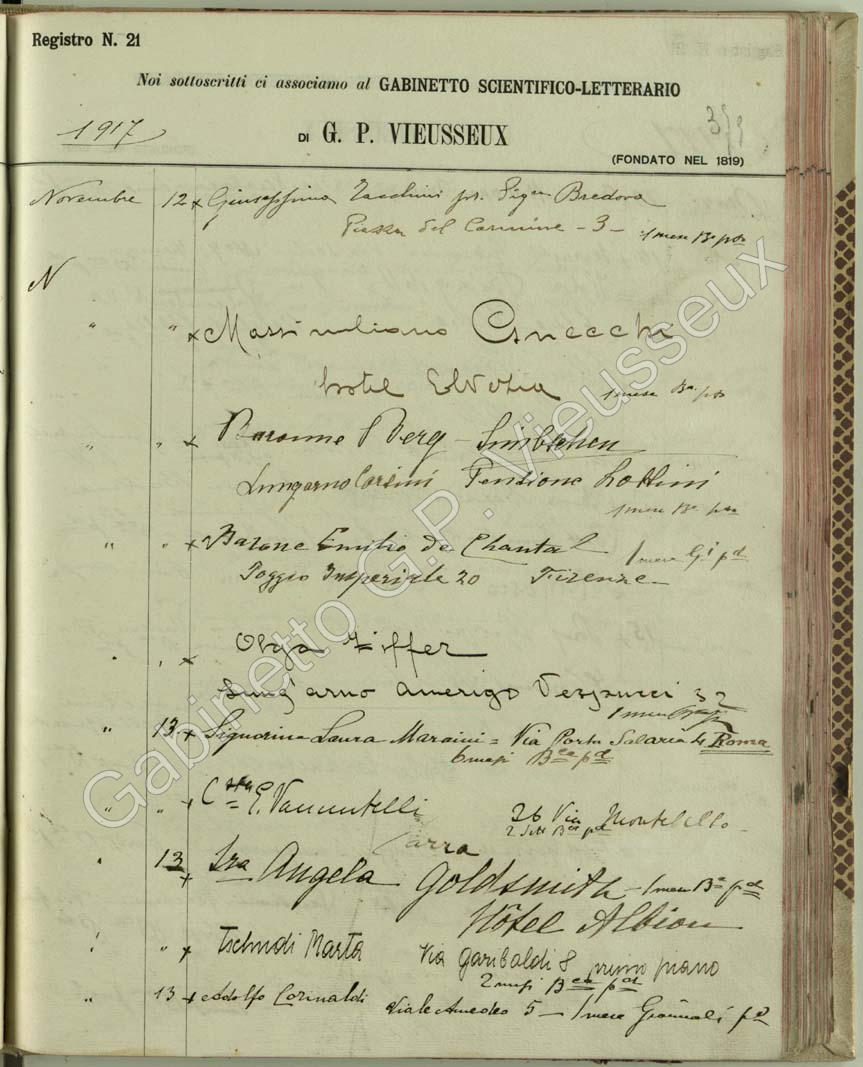 Registro N. 21
Noi sottoscritti ci associamo al GABINETTO SCIENTIFICO-LETTERARIO
1917
DI G. P. VIEUSSEUX
(FONDATO NEL 1819)
Novembre 12 x Giuseppina pr. Sigra Bredova
Piazza del Carmine - 3 - 1 mese Ba pto
N
" " x Massimiliano Gnecchi
hotel Elvezia 1 mese Ba pto
" " x Baronne Berg -
Lungarno Corsini Pensione Lottini
1 mese Ba pto
" " x Barone Emilio de Chantal 1 mese Gi pd
Poggio Imperiale 20 Firenze -
" " x Olga Ziffer
Lung'arno Amerigo Vespucci 32
1 mese
" 13 x Signorina Laura Maraini = Via Porta Salaria 4 Roma
6 mesi Bca pd
" " x Cssa E. Vannutelli 26 Via Montebello -
2 Sett Bca pd
Carra
" 13 x Sra Angela Goldsmith - 1 mese Ba pd
Hôtel Albion
" " x Tschudi Marta Via Garibaldi 8 primo piano
2 mesi Bca pd
" 13 x Adolfo Corinaldi Viale Amedeo 5 - 1 mese Giornali pd
Gabinetto G.P. Vieusseux